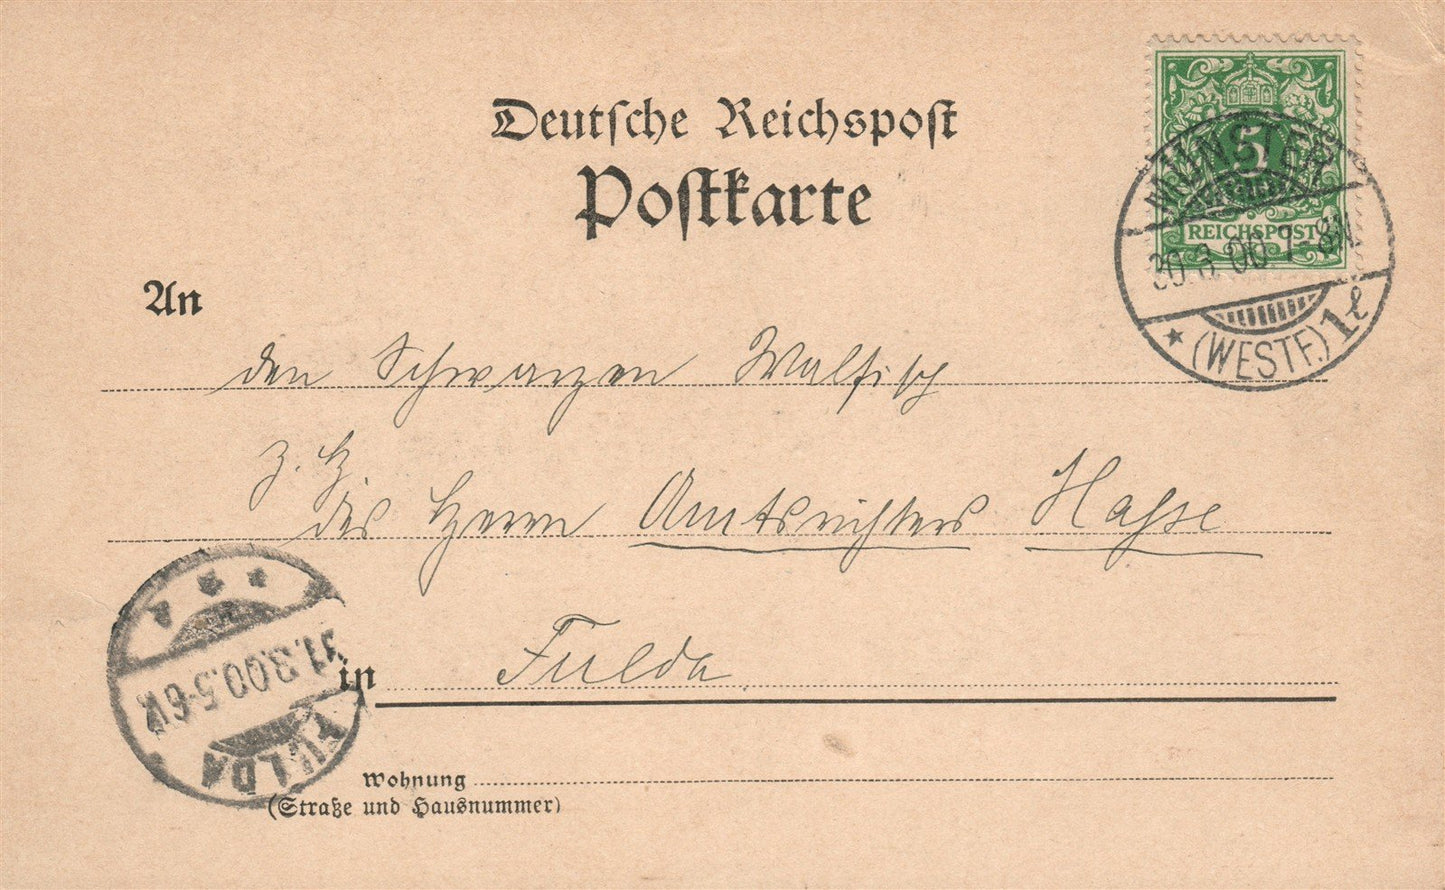 Deutsche Reichspost
Postkarte
5
REICHSPOST
MÜNSTER
30.3.00 7-8V.
* (WESTF.) 1 l
An
den Schwarzen Walfisch
z. H.
des Herrn Amtsrichters Hasse
in Fulda
31.3.00.5-6V.
FULDA
Wohnung
(Straße und Hausnummer)